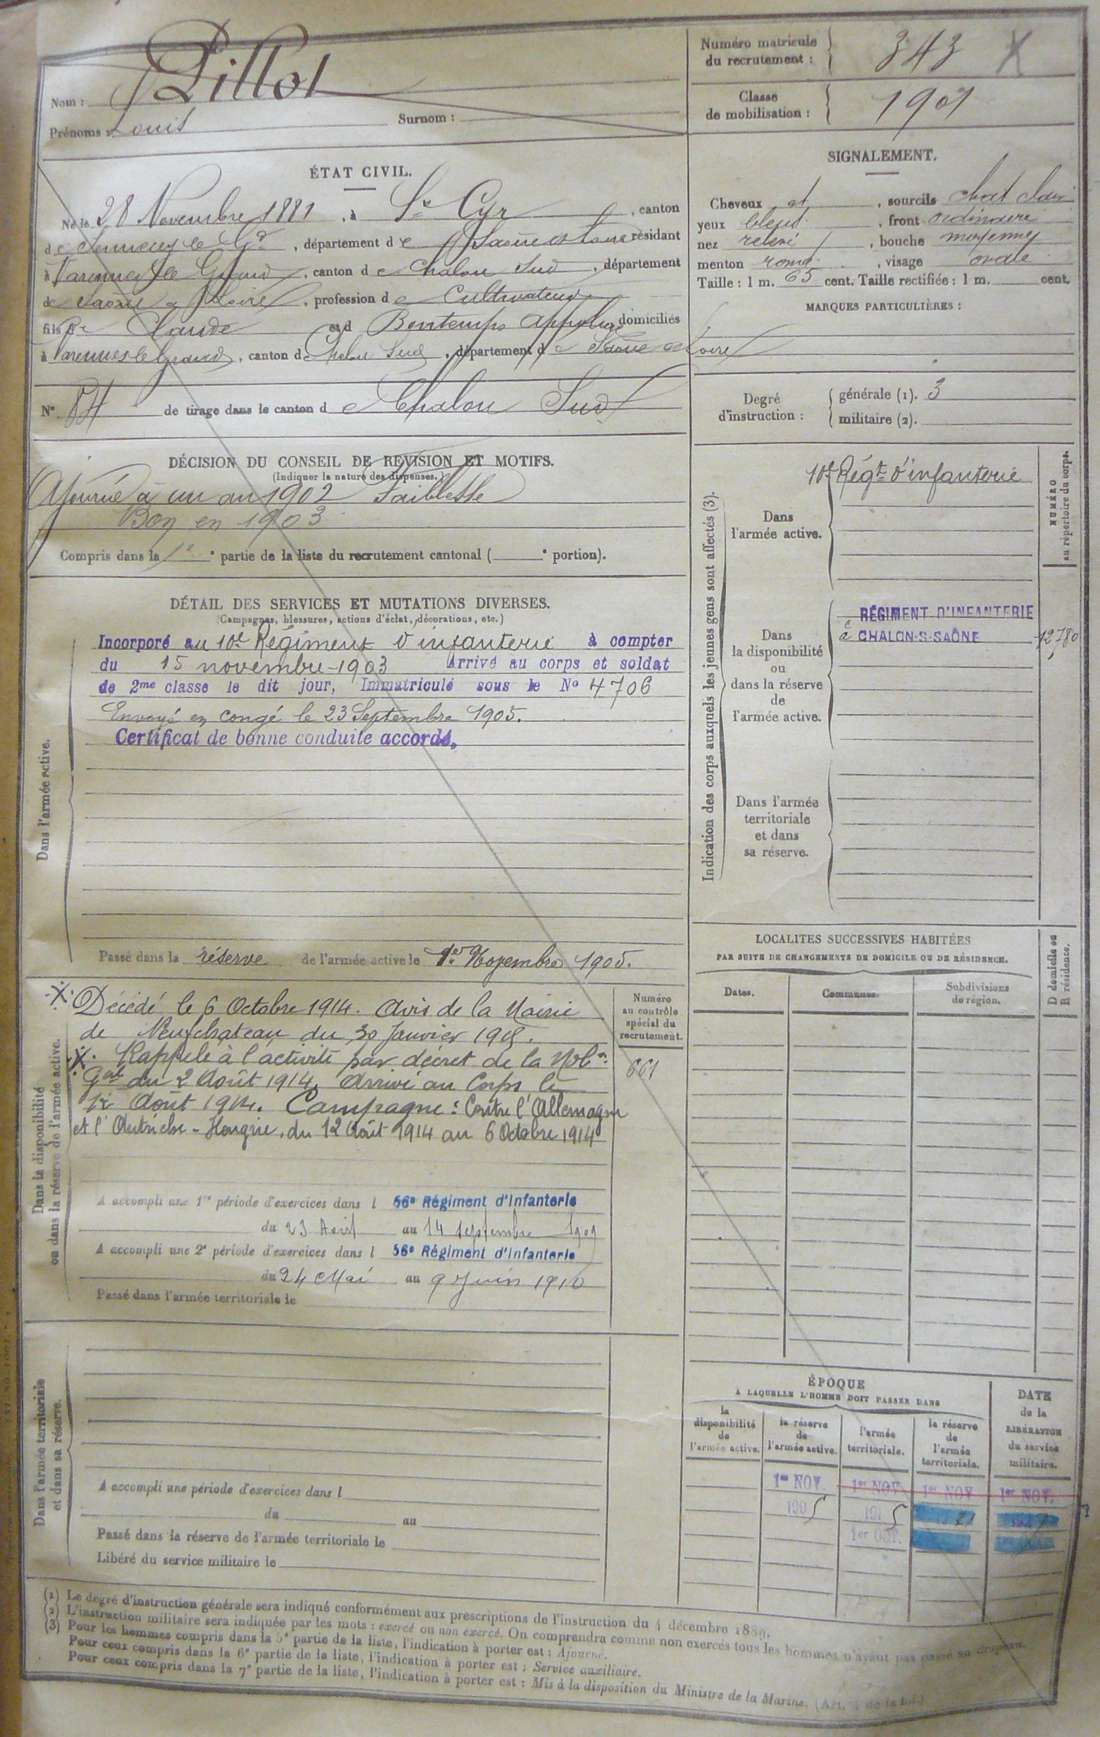 Nom : Pillot
Prénoms : Louis Surnom :
Numéro matricule du recrutement : 343 X
Classe de mobilisation : 1901
ÉTAT CIVIL.
Né le 28 Novembre 1881, à St Cyr, canton
de Sennecey le Gd, département de Saône et Loire résidant
à Varennes le Grand, canton de Chalon Sud, département
de Saône et Loire, profession de Cultivateur
fils de Claude et d Bontemps domiciliés
à Varennes le Grand, canton d Chalon Sud, département d e Saône et Loire
N° 84 de tirage dans le canton d e Chalon Sud
SIGNALEMENT.
Cheveux et, sourcils chat clair
yeux bleus, front ordinaire
nez relevé, bouche moyenne
menton rond, visage ovale
Taille : 1 m. 65 cent. Taille rectifiée : 1 m. cent.
MARQUES PARTICULIÈRES :
Degré d'instruction :
générale (1). 3
militaire (2).
DÉCISION DU CONSEIL DE RÉVISION ET MOTIFS.
(Indiquer la nature des dispenses.)
Ajourné à un an 1902 Faiblesse
Bon en 1903
Compris dans la 1e partie de la liste du recrutement cantonal ( e portion).
DÉTAIL DES SERVICES ET MUTATIONS DIVERSES.
(Campagnes, blessures, actions d'éclat, décorations, etc.)
Dans l'armée active.
Incorporé au 10e Régiment d'infanterie à compter
du 15 novembre 1903 Arrivé au corps et soldat
de 2me classe le dit jour, Immatriculé sous le No 4706
Envoyé en congé le 23 Septembre 1905.
Certificat de bonne conduite accordé.
Passé dans la réserve de l'armée active le 1er Novembre 1905.
Dans la disponibilité ou dans la réserve de l'armée active.
X. Décédé le 6 Octobre 1914. Avis de la Mairie
de Neufchateau du 30 Janvier 1915.
X. Rappelé à l'activité par décret de la Mobon
Gale du 2 Août 1914. Arrivé au Corps le
12 Août 1914. Campagne : Contre l'Allemagne
et l'Autriche-Hongrie, du 12 Août 1914 au 6 Octobre 1914
Numéro au contrôle spécial du recrutement.
661
A accompli une 1re période d'exercices dans l 56e Régiment d'Infanterie
du 23 au 14 septembre
A accompli une 2e période d'exercices dans l 56e Régiment d'Infanterie
du 24 Mai au 9 Juin 1910
Passé dans l'armée territoriale le
Dans l'armée territoriale et dans sa réserve.
A accompli une période d'exercices dans l
du au
Passé dans la réserve de l'armée territoriale le
Libéré du service militaire le
Indication des corps auxquels les jeunes gens sont affectés (3).
NUMÉRO au répertoire du corps.
Dans l'armée active.
10e Régt d'infanterie
Dans la disponibilité ou dans la réserve de l'armée active.
RÉGIMENT D'INFANTERIE
à CHALON-S-SAÔNE 12780
Dans l'armée territoriale et dans sa réserve.
LOCALITÉS SUCCESSIVES HABITÉES
PAR SUITE DE CHANGEMENTS DE DOMICILE OU DE RÉSIDENCE.
Dates. Communes. Subdivisions de région. D domicile ou R résidence.
ÉPOQUE
A LAQUELLE L'HOMME DOIT PASSER DANS
la disponibilité de l'armée active.
la réserve de l'armée active.
l'armée territoriale.
la réserve de l'armée territoriale.
DATE de la LIBÉRATION du service militaire.
1er NOV. 1er NOV. 1er NOV 1er NOV.
1905 1915
1er OCT.
(1) Le degré d'instruction générale sera indiqué conformément aux prescriptions de l'instruction du 4 décembre 1889.
(2) L'instruction militaire sera indiquée par les mots : exercé ou non exercé. On comprendra comme non exercés tous les hommes n'ayant pas passé au drapeau.
(3) Pour les hommes compris dans la 5e partie de la liste, l'indication à porter est : Ajourné.
Pour ceux compris dans la 6e partie de la liste, l'indication à porter est : Service auxiliaire.
Pour ceux compris dans la 7e partie de la liste, l'indication à porter est : Mis à la disposition du Ministre de la Marine. (Art. 4 de la loi.)